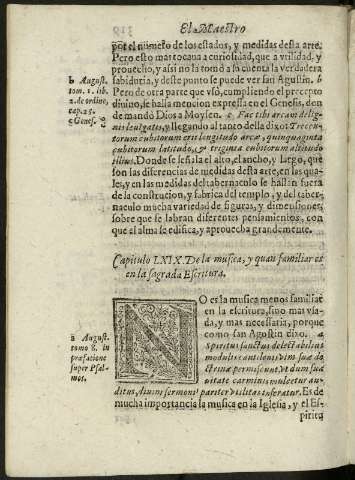 El Maestro
por el numero de los estados, y medidas desta arte.
Pero esto mas tocaua a curiosidad, que a vtilidad, y
prouecho, y assi no la tomò a su cuenta la verdadera
sabiduria, y deste punto se puede ver san Agustin. b
Pero de otra parte que vsò, cumpliendo el precepto
diuino, se halla mencion expressa en el Genesis, don
de mandò Dios a Moysen. c Fac tibi arcam de lig-
nis leuigatis, y llegando al tanto della dixo: Trecen-
torum cubitorum erit longitudo arcæ, quinquaginta
cubitorum latitudo, & triginta cubitorum altitudo
illius. Donde se señala el alto, el ancho, y largo, que
son las diferencias de medidas desta arte, en las qua-
les, y en las medidas del tabernaculo se hallan fuera
de la construcion, y fabrica del templo, y del taber-
naculo mucha variedad de figuras, y dimensiones,
sobre que se labran diferentes pensamientos, con
que el alma se edifica, y aprouecha grandemente.
b August.
tom. 1. lib.
2. de ordine,
cap. 25.
c Genes. 6
Capitulo LXIX. De la musica, y quan familiar es
en la sagrada Escritura.
NO es la musica menos familiar
en la escritura, sino mas vsa-
da, y mas necessaria, porque
como san Agustin dixo. a
Spiritus sanctus delectabilibus
modulis cantilenis vim suæ do-
ctrinæ permiscuit, vt dum sua
uitate carminis mulcetur au-
ditus, diuini sermonis pariter vtilitas inseratur. Es de
mucha importancia la musica en la Iglesia, y el Es-
piritu
a August.
tomo 8. in
præfatione
super Psal-
mos.